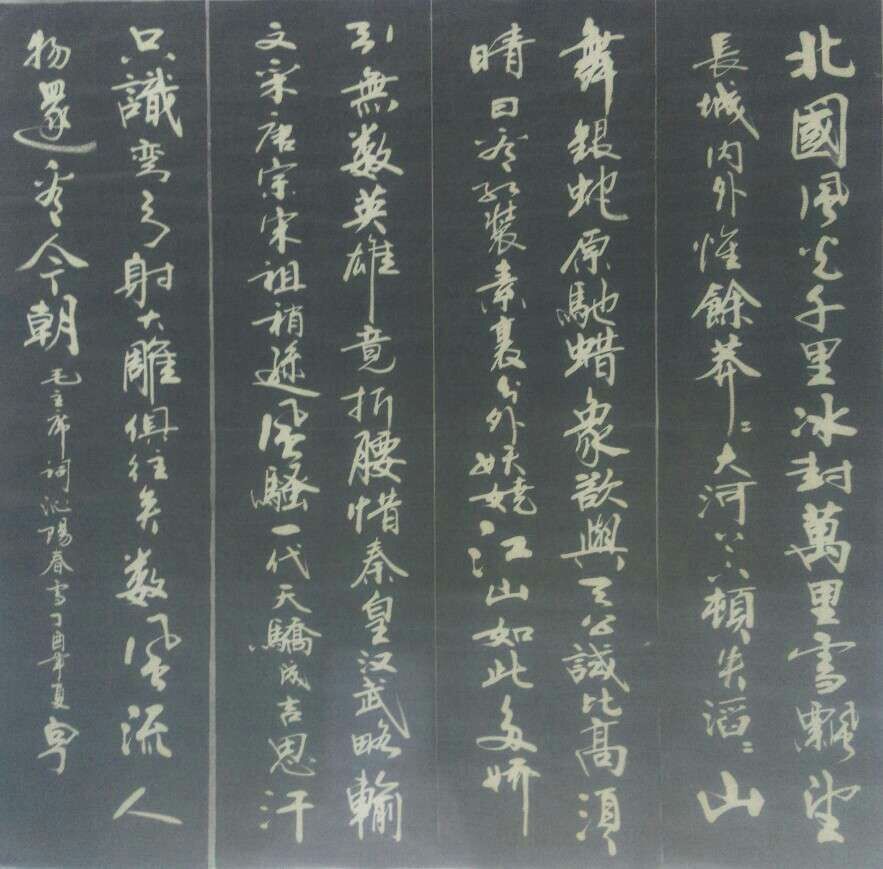 北國風光千里冰封萬里雪飄望
長城内外惟餘莽〻大河上下頓失滔〻山
舞銀蛇原馳蜡象欲與天公試比高須
晴日看红裝素裹分外妖嬈江山如此多娇
引無数英雄竟折腰惜秦皇汉武略輸
文采唐宗宋祖稍遜風騷一代天驕成吉思汗
只識弯弓射大雕俱往矣数風流人
物還看今朝 毛主席词沁陽春雪丁酉年夏